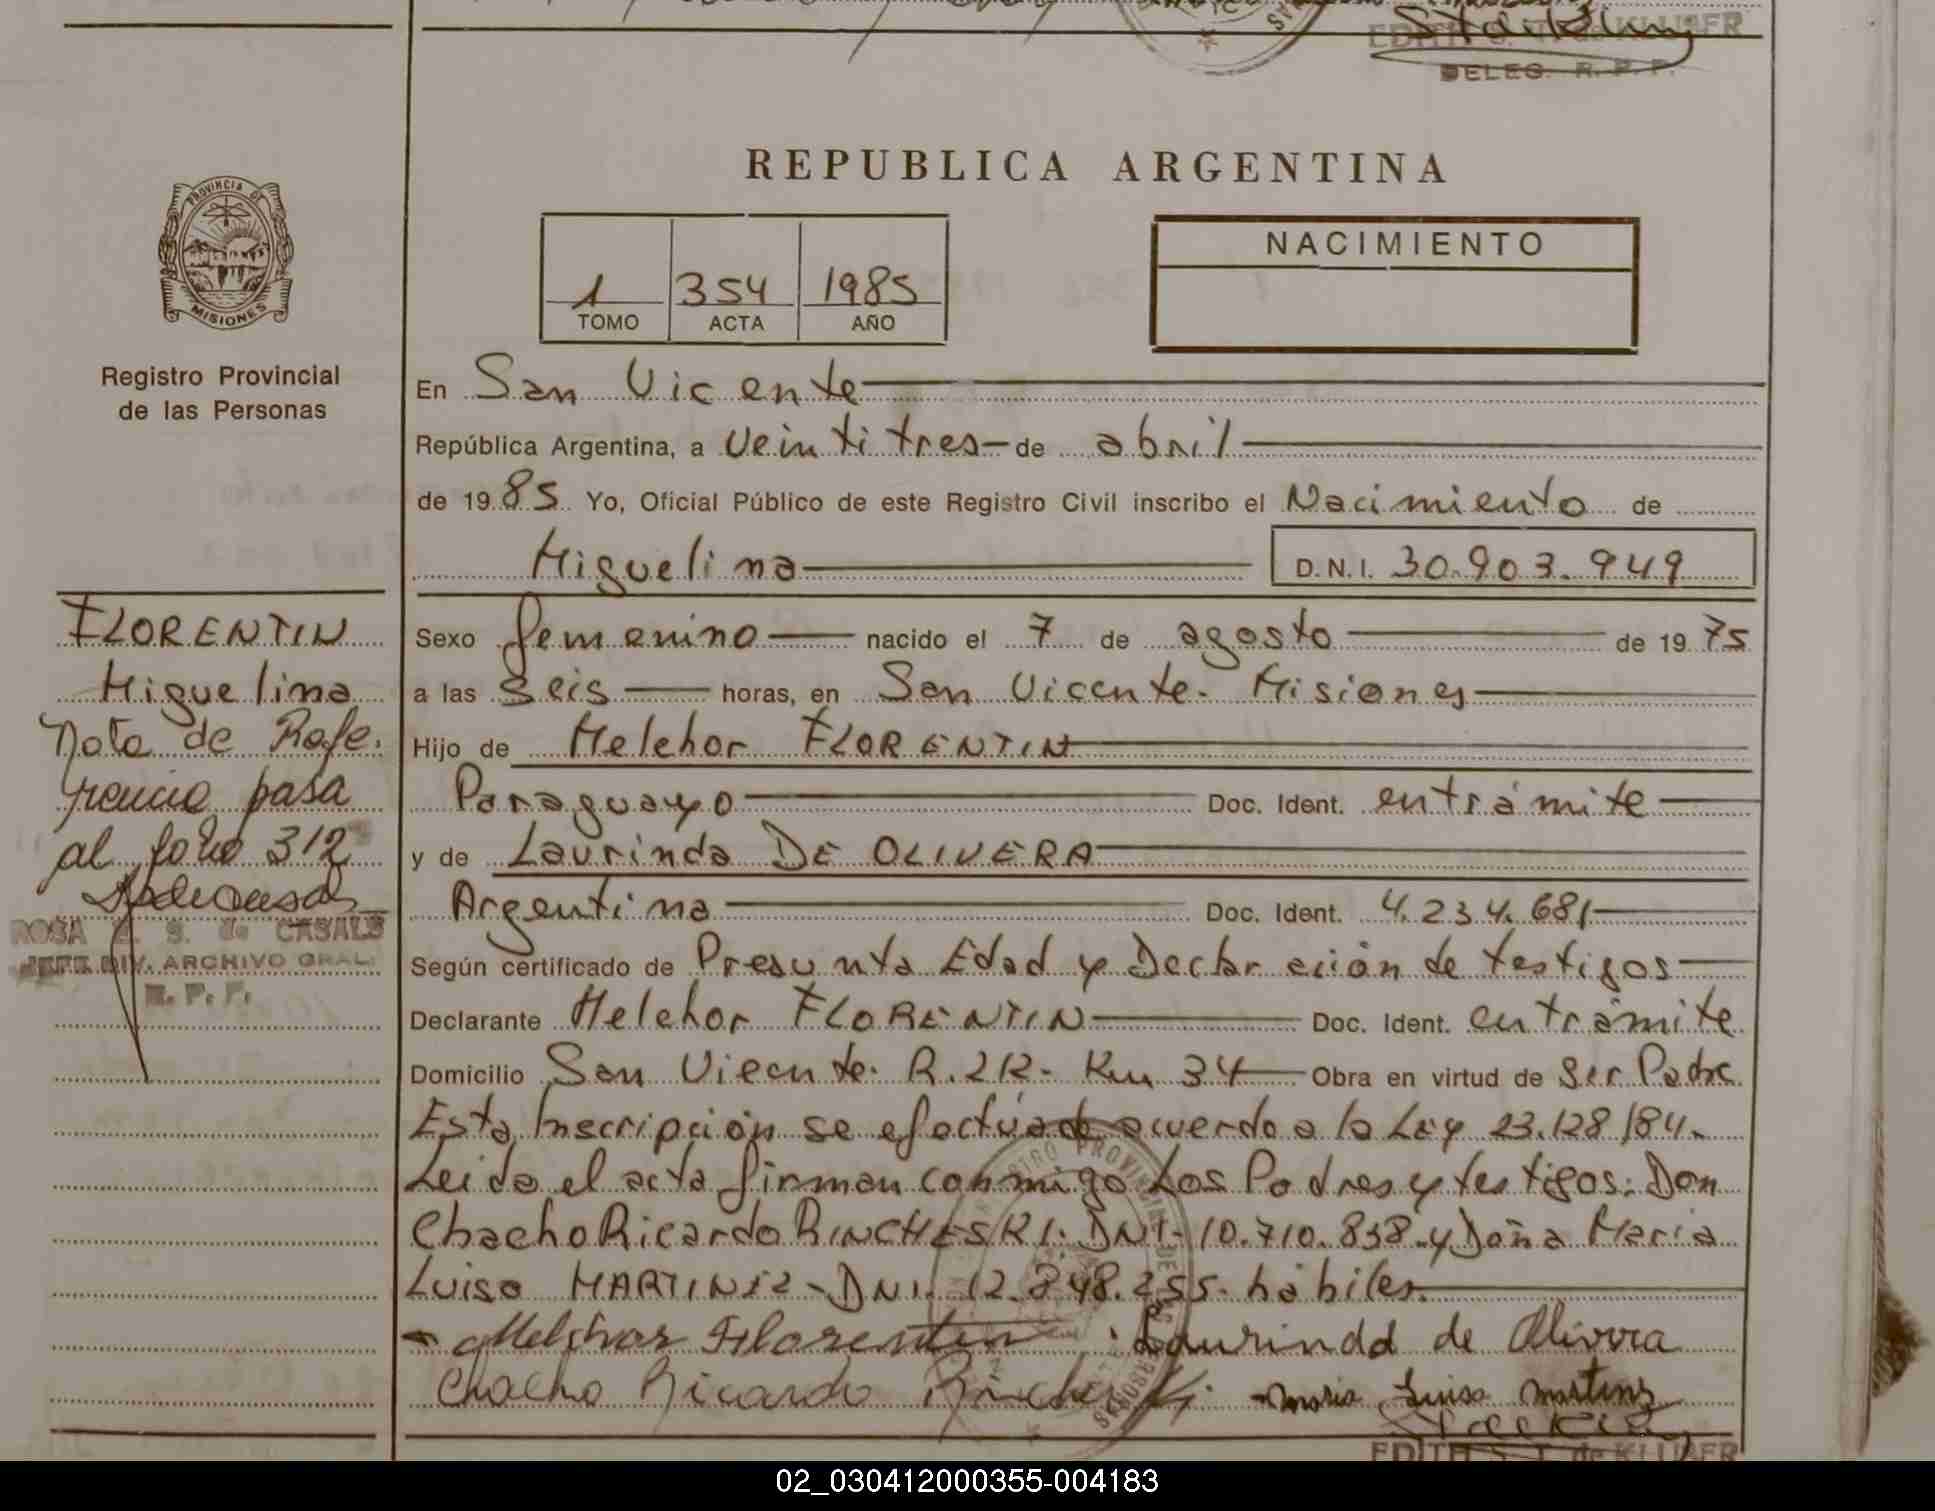 DELEG. R. P. P.
REPUBLICA ARGENTINA
PROVINCIA DE
MISIONES
Registro Provincial
de las Personas
1 354 1985
TOMO ACTA AÑO
NACIMIENTO
En San Vicente
República Argentina, a veintitres de abril
de 1985 Yo, Oficial Público de este Registro Civil inscribo el Nacimiento de
Miguelina D.N.I. 30.903.949
Sexo femenino nacido el 7 de agosto de 1975
a las seis horas, en San Vicente. Misiones
Hijo de Melchor FLORENTIN
Paraguayo Doc. Ident. entrámite
y de Laurinda DE OLIVERA
Argentina Doc. Ident. 4.234.681
Según certificado de Presunta Edad y Declaración de testigos
Declarante Melchor FLORENTIN Doc. Ident. entrámite
Domicilio San Vicente. R.212. Km 34 Obra en virtud de ser Padre
Esta Inscripción se efectúa de acuerdo a la Ley 23.128/84.
Leida el acta firman conmigo Los Padres y testigos: Don
Chacho Ricardo RINCHESKI. DNI. 10.710.838. y Doña Maria
Luisa MARTINEZ - DNI. 12.848.255. hábiles.
Melchor Florentin Laurinda de Olivera
Chacho Ricardo Maria Luisa Martinz
EDITH S. T. de KLUSER
FLORENTIN
Miguelina
Nota de Refe.
rencia pasa
al folio 312
ROSA E. S. de CASALS
JEFE DIV. ARCHIVO GRAL.
R. P. P.
02_030412000355-004183